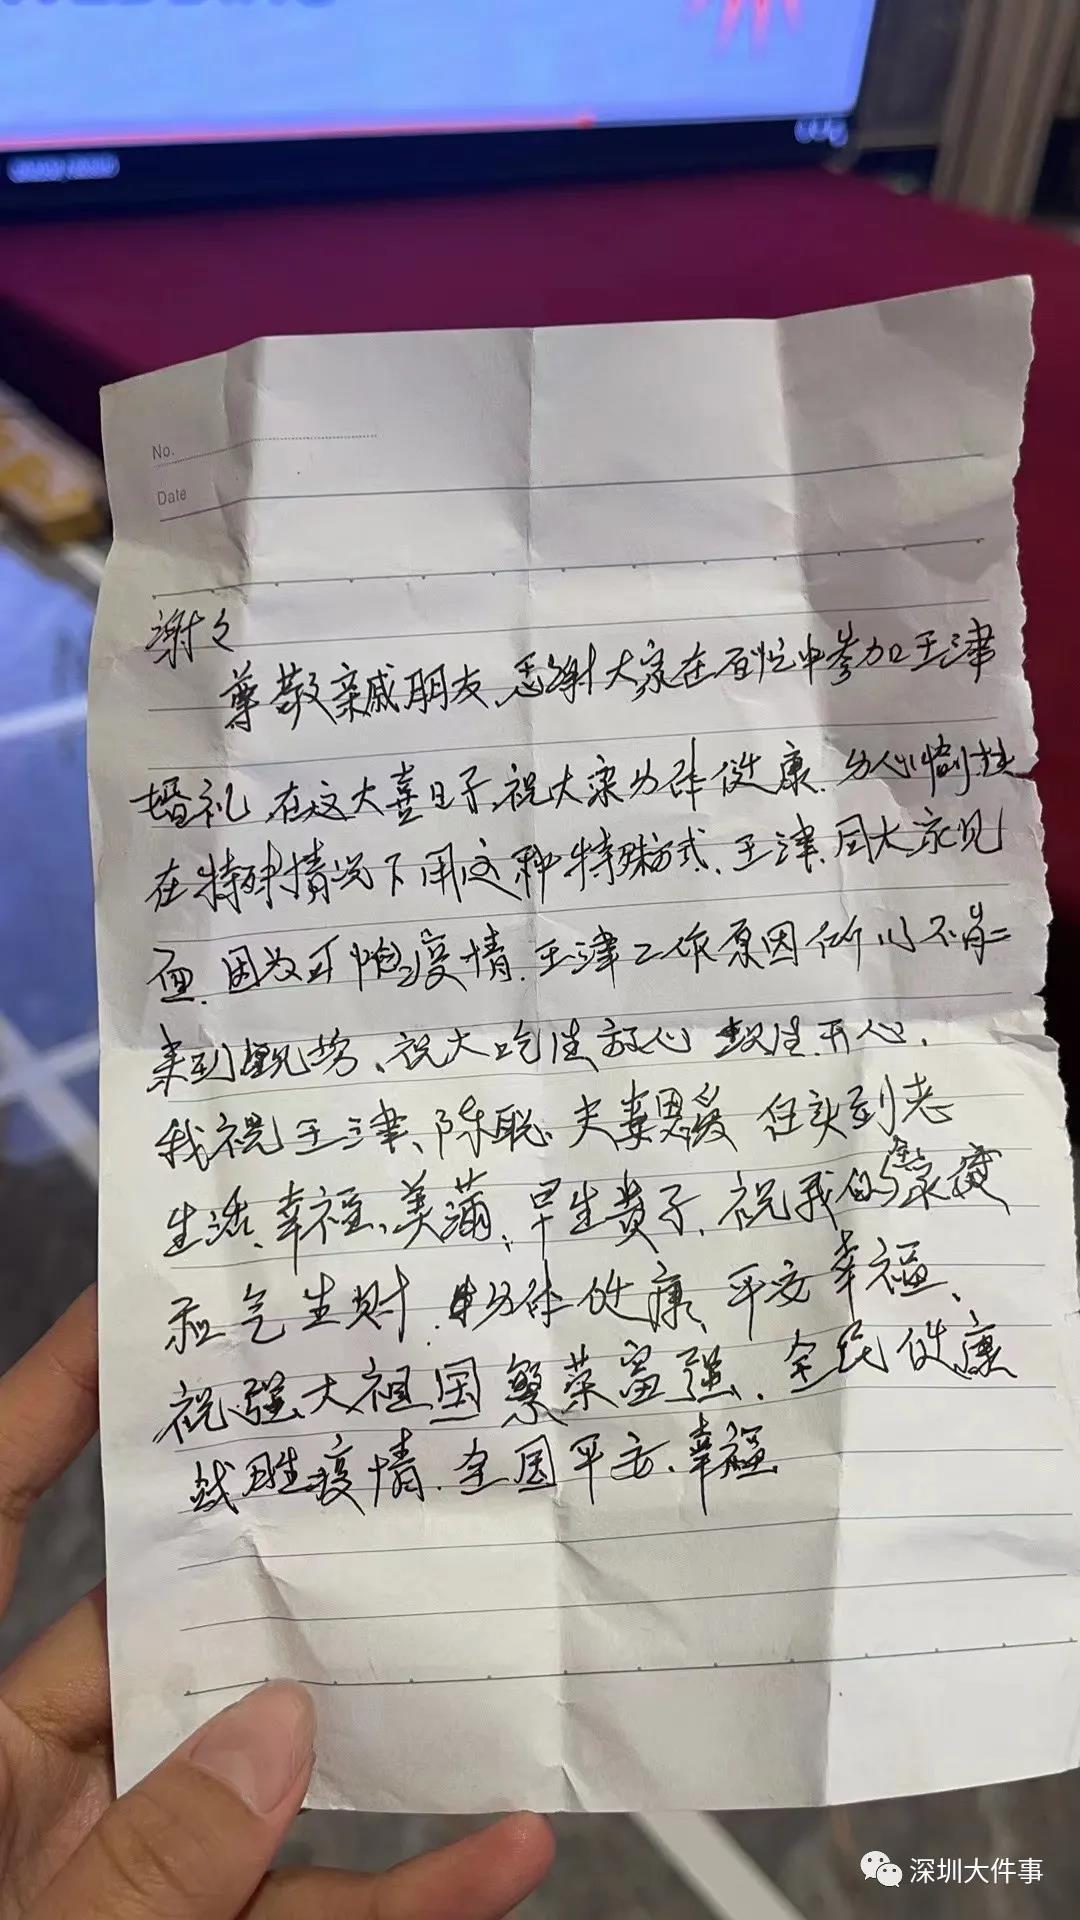 No.
Date
谢々
尊敬亲戚朋友、感谢大家在百忙中参加王津
婚礼 在这大喜日子、祝大家身体健康、身心愉快
在特殊情况下用这种特殊方式、王津、同大家见
面、因为可怕疫情、王津工作原因所以不能
来到现场、祝大吃住放心 玩住开心、
我祝王津、陈聪、夫妻恩爱 白头到老
生活、幸福、美满、早生贵子、祝我的家庭
和气生财、身体健康、平安幸福、
祝强大祖国繁荣富强、全民健康
战胜疫情、全国平安、幸福
深圳大件事